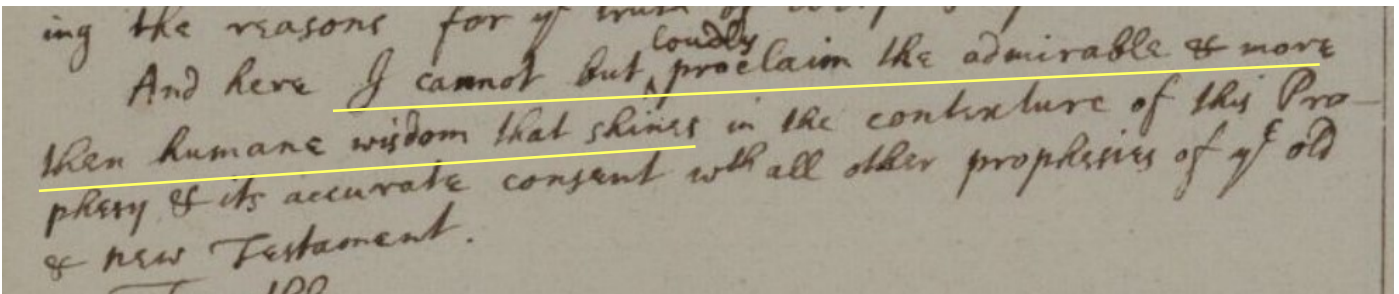 ing the reasons for yͤ
And here I cannot but loudly proclaim the admirable & more
then humane wisdom that shines in the contexture of this Pro-
phesy & its accurate consent wth all other prophesies of yͤ old
& new Testament.